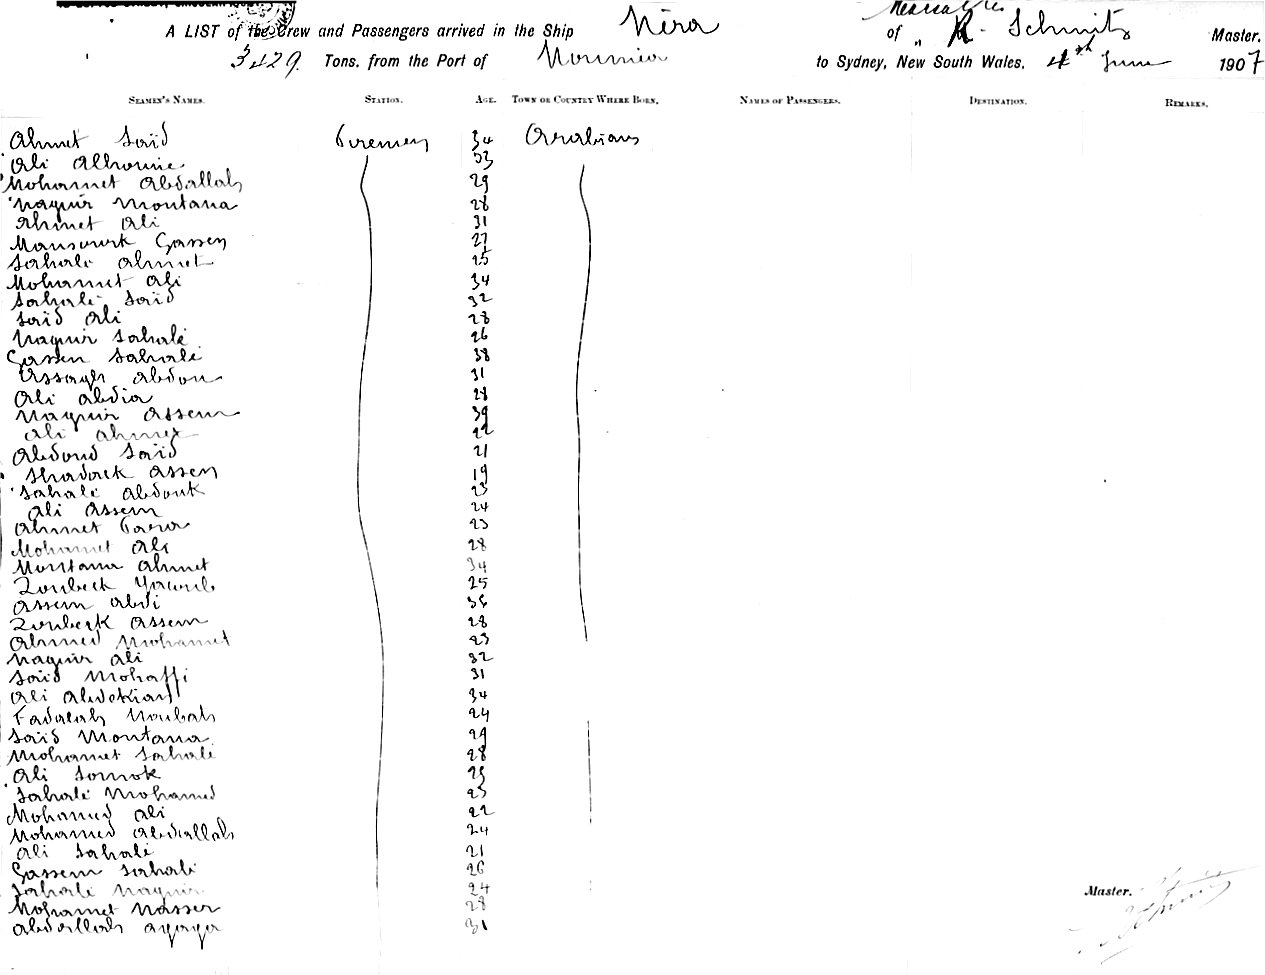 A LIST of the Crew and Passengers arrived in the Ship Néra of Marseilles R. Schmitz Master.
3429. Tons. from the Port of Noumea to Sydney, New South Wales, 4th June 1907
SEAMEN'S NAMES. STATION. AGE. TOWN OR COUNTRY WHERE BORN. NAMES OF PASSENGERS. DESTINATION. REMARKS.
Ahmet Saïd Firemen 34 Arabians
Ali Alhouïne 33
Mohamet Abdallah 29
Naguir Montana 28
Ahmet Ali 31
Mansourk Gassen 27
Sahalé Ahmet 25
Mohamet Ali 34
Sahalé Saïd 32
Saïd Ali 28
Naguir Sahalé 26
Gassen Sahalé 38
Assagh Abdou 31
Ali Abdia 28
Naguir Assem 39
Ali Ahmet 22
Abdoud Saïd 21
Shadock Assen 19
Sahalé Abdouk 23
Ali Assem 24
Ahmet 23
Mohamet Ali 28
Montana Ahmet 34
Zoubeck Yacoub 25
Assem Abdi 38
Zoubeck Assem 28
Ahmed Mohamet 23
Naguir Ali 32
Saïd Mohaffi 31
Ali 34
Fadalah Noubah 24
Saïd Montana 29
Mohamet Sahalé 28
Ali Samok 25
Sahalé Mohamed 23
Mohamed Ali 22
Mohamed Abdallah 24
Ali Sahalé 21
Gassem Sahalé 26
Sahalé Naguir 24
Master.
Mohamet Nasser 28
Abdallah Ayaya 31